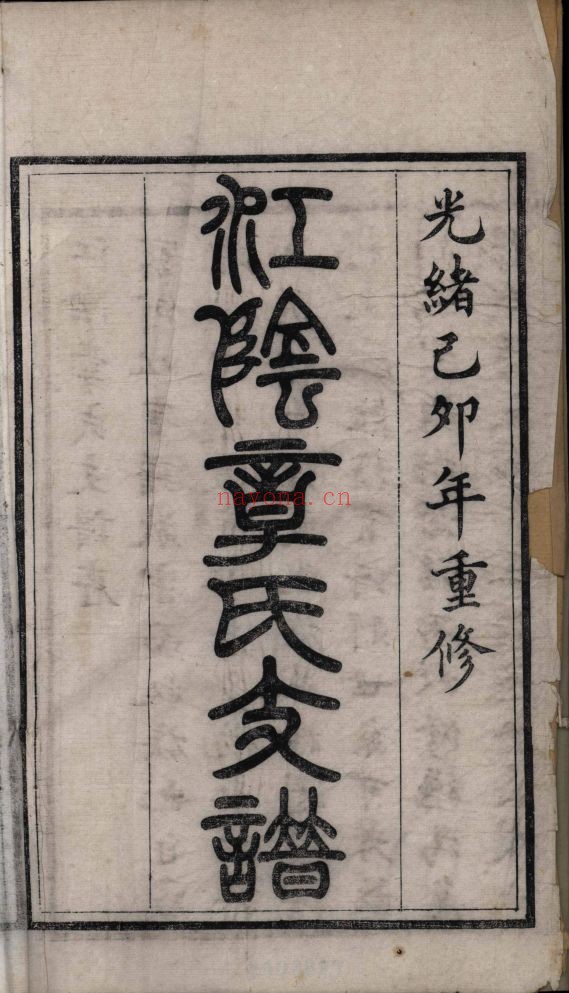 光緒己夘年重修
江陰章氏支譜
nayona.cn